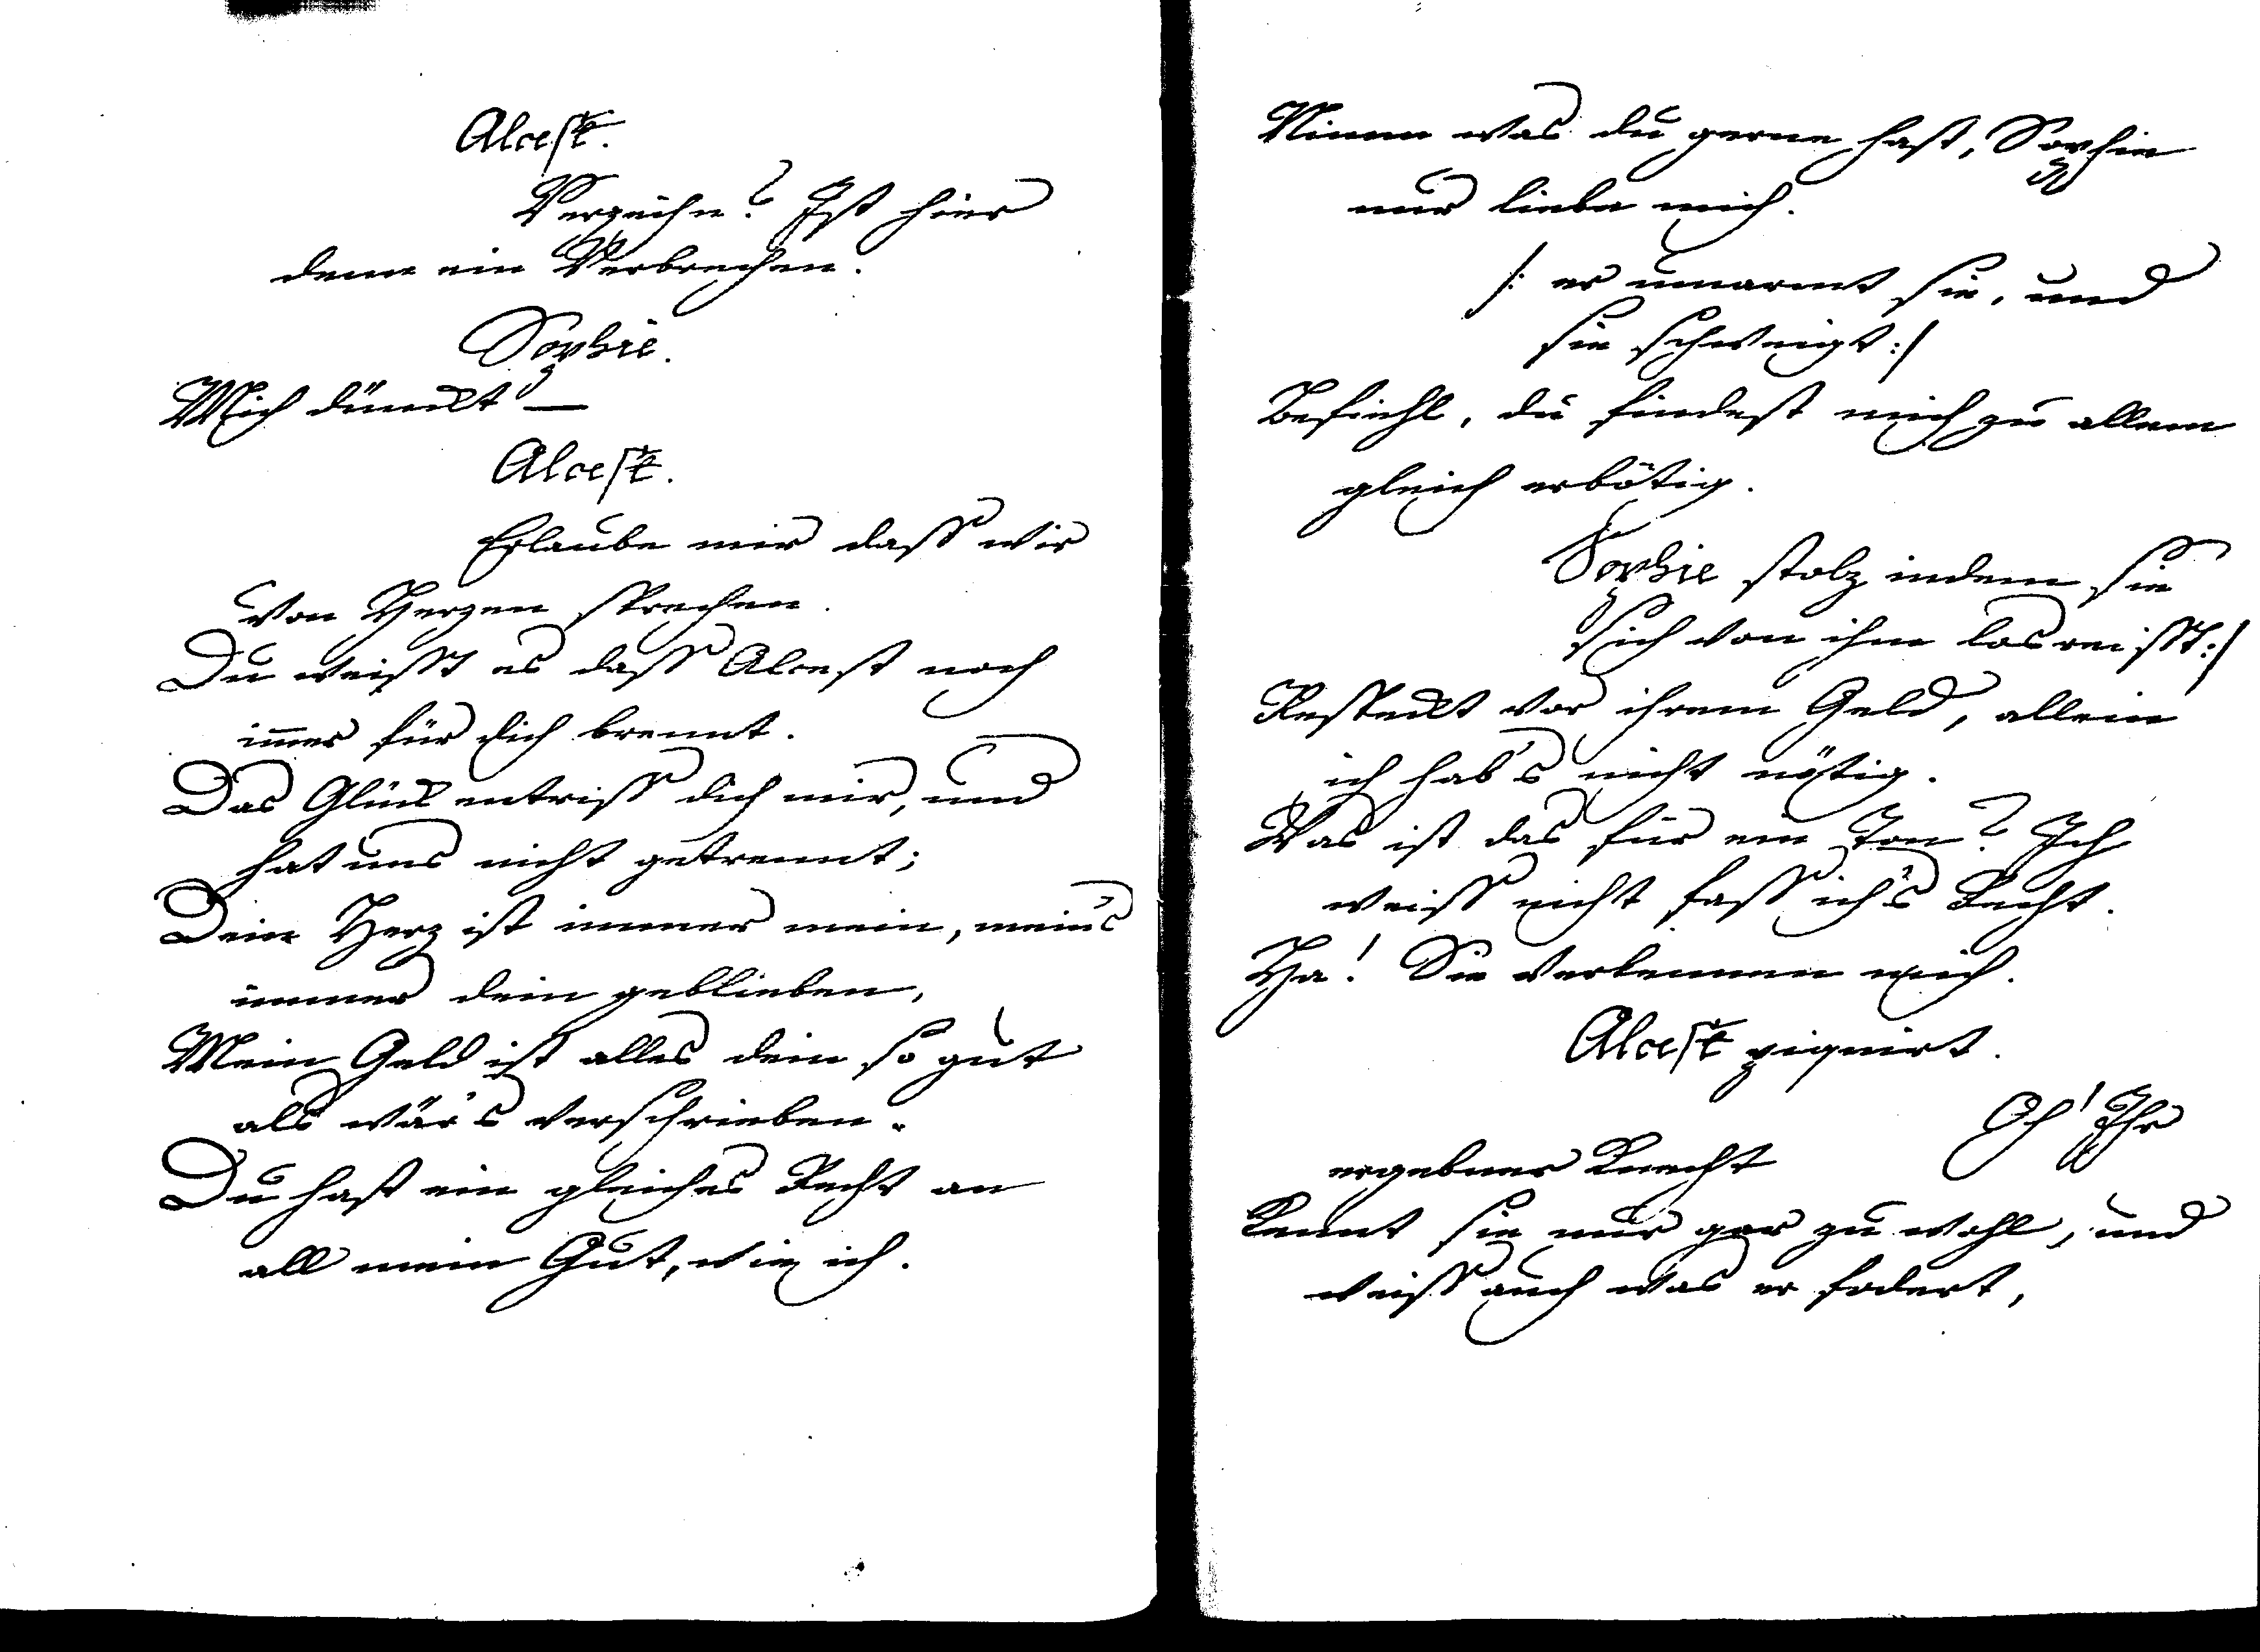 Alcest.
Verzeihn? Ist hier
denn ein Verbrechen.
Sophie.
Mich dünckt —
Alcest.
Erlaube mir daß wir
von Herzen sprechen.
Du weißt es daß Alcest noch
im̄er für dich brennt.
Das Glück entriß dich mir, und
hat uns nicht getrennt;
Dein Herz ist immer mein, meins
immer dein geblieben,
Mein Geld ist alles dein so gut
als wär's verschrieben.
Du hast ein gleiches Recht an
all mein Gut, wie ich.
Nimm was du gerne hast, Sophie
nur liebe mich.
/: er umarmt sie, und
sie schweigt :/
Befiehl, du findest mich zu allem
gleich erbötig.
Sophie stolz indem sie
sich von ihm losreißt :/
Respeckt vor ihrem Geld, allein
ich hab's nicht nötig.
Was ist das für ein Ton? Ich
weiß nicht faß ich's Recht.
Ha! Sie verkennen mich.
Alcest piquirt.
Oh! Ihr
ergebner Knecht
Kennt sie nur gar zu wohl, und
weiß auch was er fodert,